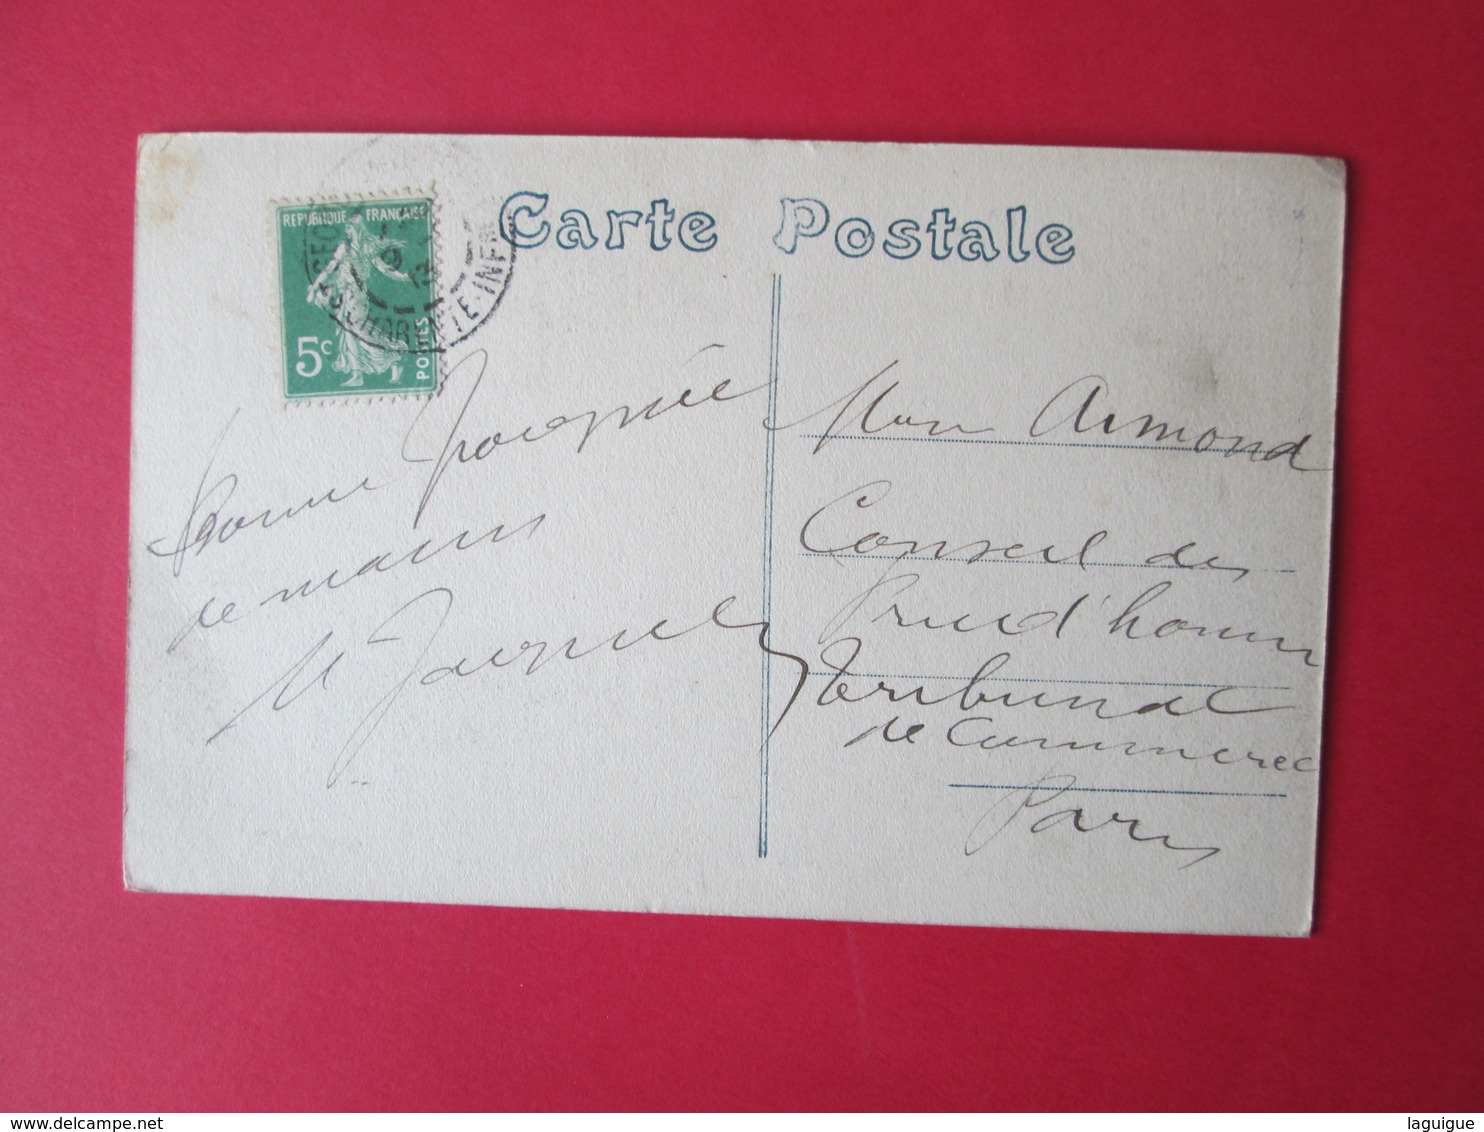 Carte Postale
REPUBLIQUE FRANÇAISE
5c
POSTES
CHARENTE-INFRE
Bonne poignée
de mains
M Jacques
Mon Armond
Conseil des
Prud'hommes
Tribunal
de Commerce
Paris
www.delcampe.net
laguigue